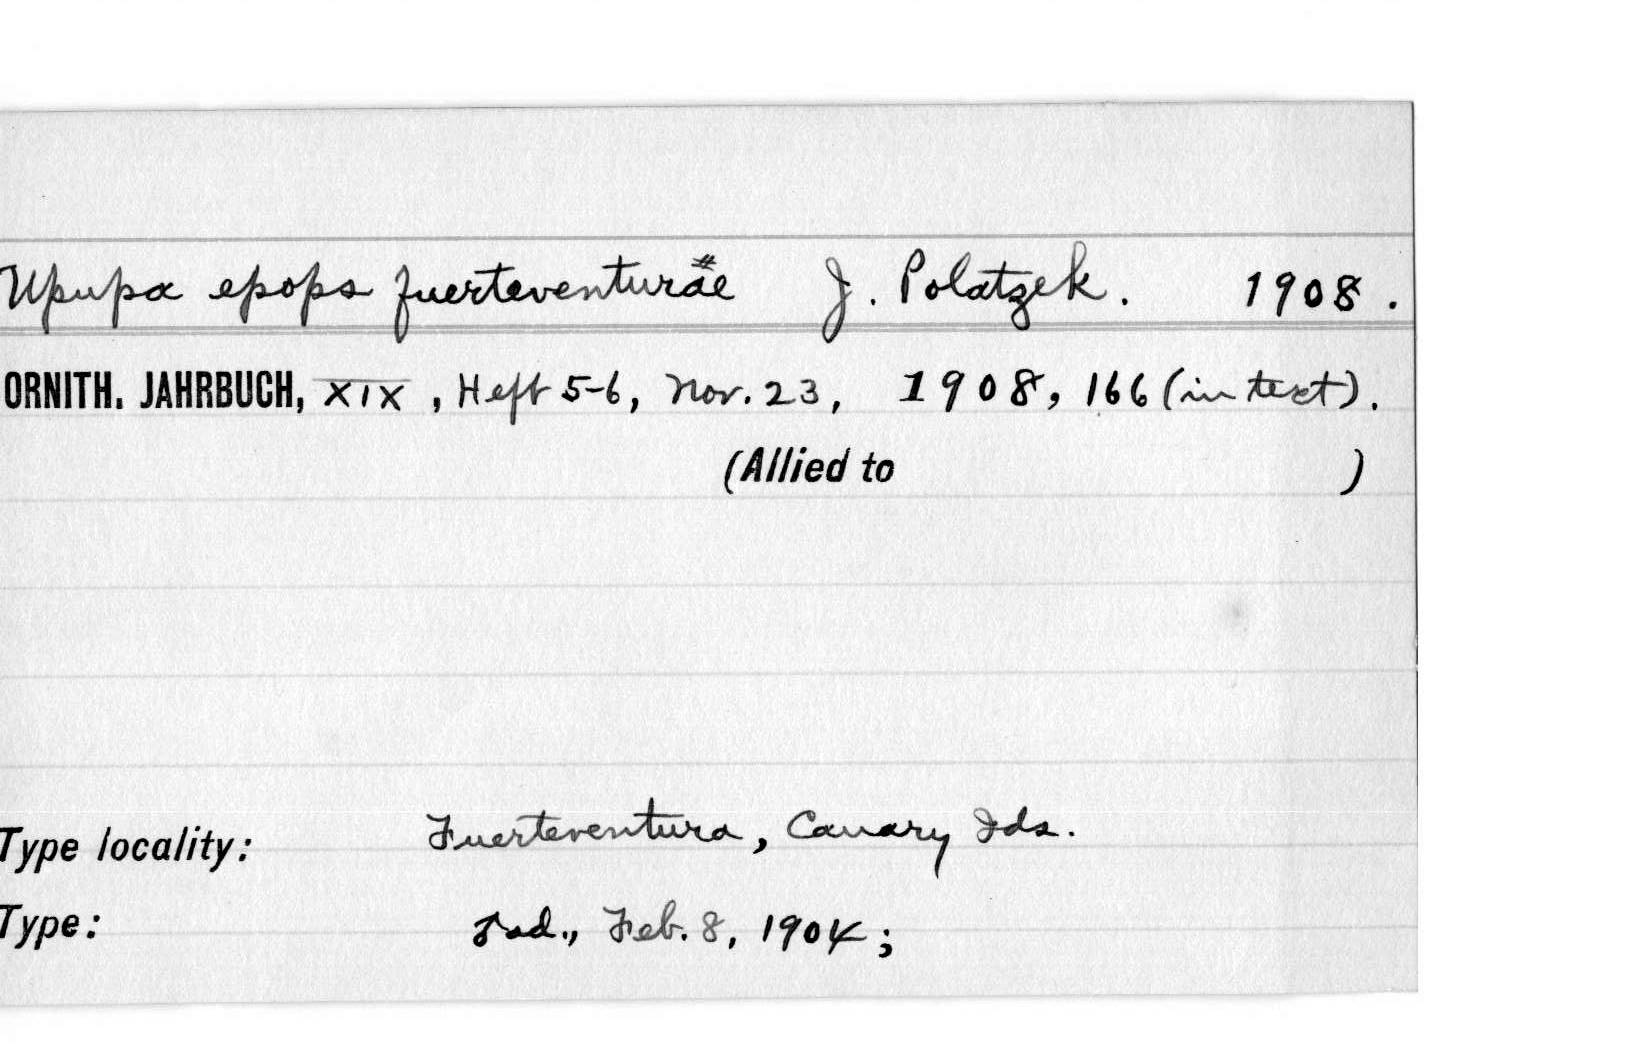 Upupa epops fuerteventuræ J. Polatzek. 1908.
ORNITH. JAHRBUCH, XIX, Heft 5-6, Nov. 23, 1908, 166 (in text).
(Allied to )
Type locality: Fuerteventura, Canary Ids.
Type: ad., Feb. 8, 1904;